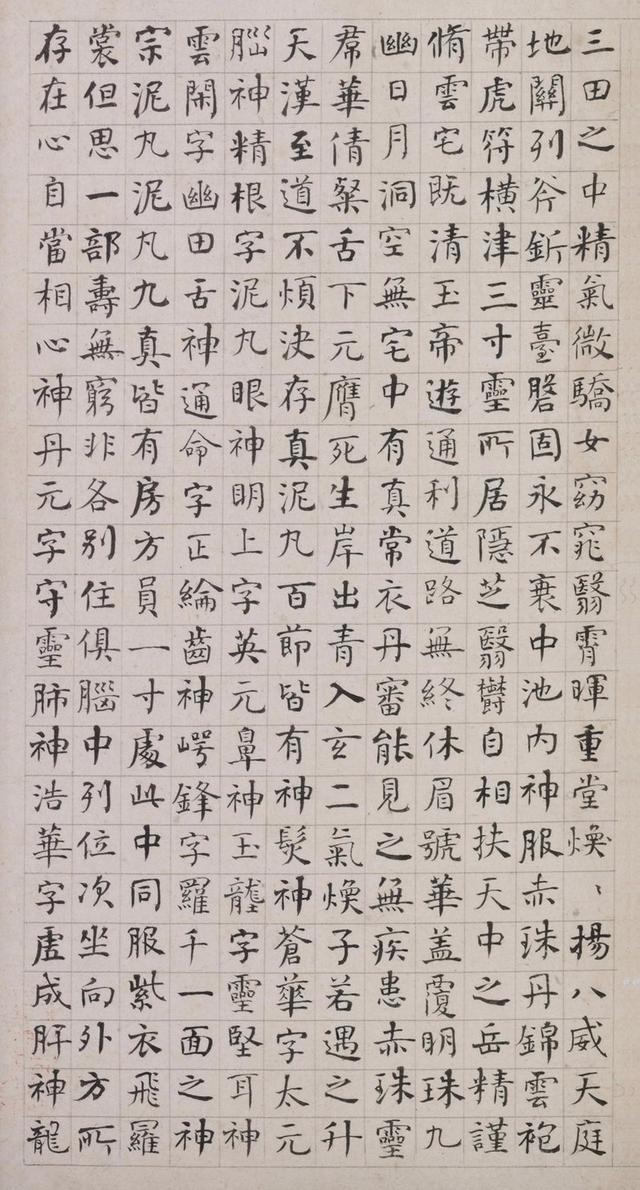 三田之中精氣微驕女窈窕翳霄暉重堂煥ヽ楊八威天庭
地關列斧釿靈臺磐固永不衰中池內神服赤珠丹錦雲袍
帶虎符橫津三寸靈所居隱芝翳鬱自相扶天中之岳精謹
脩雲宅既清玉帝遊通利道路無終休眉號華盖覆明珠九
幽日月洞空無宅中有真常衣丹審能見之無疾患赤珠靈
帬華倩粲舌下元膺死生岸出青入玄二氣煥子若遇之升
天漢至道不煩決存真泥丸百節皆有神髮神蒼華字太元
腦神精根字泥丸眼神明上字英元鼻神玉壟字靈堅耳神
雲閑字幽田舌神通命字正綸齒神崿鋒字羅千一面之神
宗泥丸泥凡九真皆有房方員一寸處此中同服紫衣飛羅
裳但思一部壽無窮非各別住俱腦中列位次坐向外方所
存在心自當相心神丹元字守靈肺神浩華字虛成肝神龍